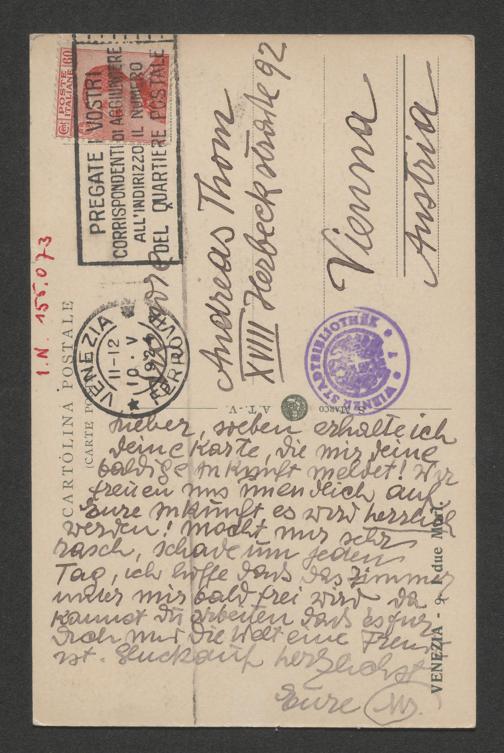 CARTOLINA POSTALE
(CARTE PO
I.N. 155.073
POSTE ITALIANE
60
PREGATE I VOSTRI
CORRISPONDENTI DI AGGIUNGERE
ALL'INDIRIZZO IL NUMERO
DEL QUARTIERE POSTALE
VENEZIA
11-12
10 · V
FERROVIA
Andreas Thom
XVIII Herbeckstraße 92
Vienna
Austria
WIENER STADTBIBLIOTHEK
S. MARCO
A.T.V.
VENEZIA - 9 - I due Mori.
Lieber, soeben erhalte ich
deine Karte, die mir deine
baldige Ankunft meldet! Wir
freuen uns unendlich auf
Eure Ankunft es wird herrlich
werden! Macht nur sehr
rasch, schade um jeden
Tag, ich hoffe dass das Zimmer
unter mir bald frei wird da
kannst du arbeiten dass es für
Dich und die Welt eine Freude
ist. Glückauf herzlichst
Eure